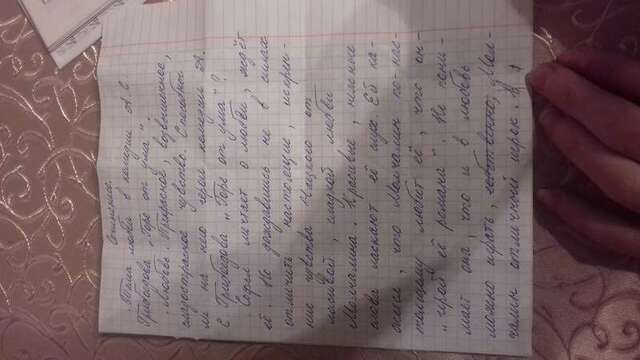 Сочинение.
Тема любви в комедии А. С
Грибоедова „Горе от ума".
Любовь. Прекрасное, возвышенное,
сладострасное чувство. Способны
ли на нею герои комедии А.
С Грибоедова „Горе от ума"?
Софья мечтает о любви, ждёт
её. Но дождавшись не в силах
отличить настоящие, искрен-
ние чувства Чацкого от
лживой, сладкой любви
Молчалина. Красивые, нежные
слова ласкают её слух. Ей ка-
жется, что Молчалин по-нас-
тоящему любит её, что он-
„герой её романа". Не пони-
мает она, что и в любовь
можно играть, собственно, Мол-
чалин отличный игрок.